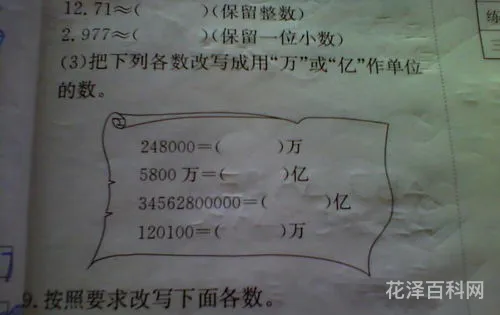 12.71≈(　　)(保留整数)
2.977≈(　　)(保留一位小数)
(3)把下列各数改写成用“万”或“亿”作单位
的数。
248000=(　　)万
5800万=(　　)亿
34562800000=(　　)亿
120100=(　　)万
9.按照要求改写下面各数。
练
花泽百科网